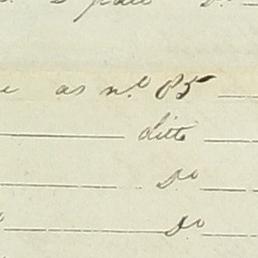 as no 85
ditto
Do
Do